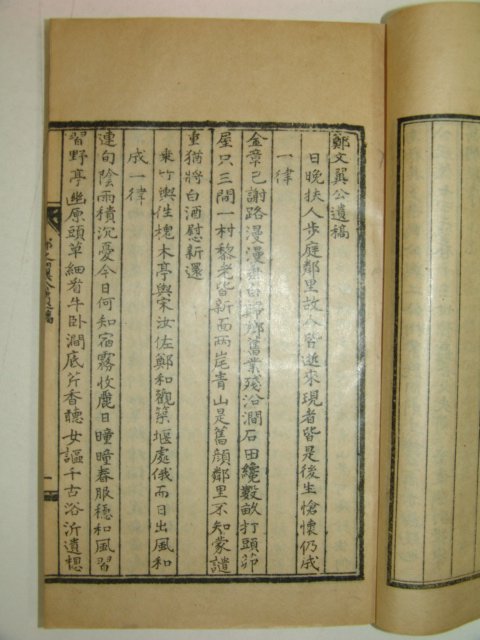 鄭文翼公遺稿
日晚扶人步庭鄰里故人皆逝來現者皆是後生愴懷仍成
一律
金章已謝路漫漫 白 鄕舊業殘沿澗石田纔數畝打頭茆
屋只三間一村黎老皆新面兩岸青山是舊顔鄰里不知蒙譴
重猶將白酒慰新還
乘竹輿往槐木亭與宋汝佐鄭和觀築堰處俄而日出風和
成一律
連旬陰雨積沉憂今日何知宿霧收麗日瞳瞳春服穩和風習
習野亭幽原頭草細看牛臥澗底芹香聽女謳千古浴沂遺想
鄭文翼公遺稿
一